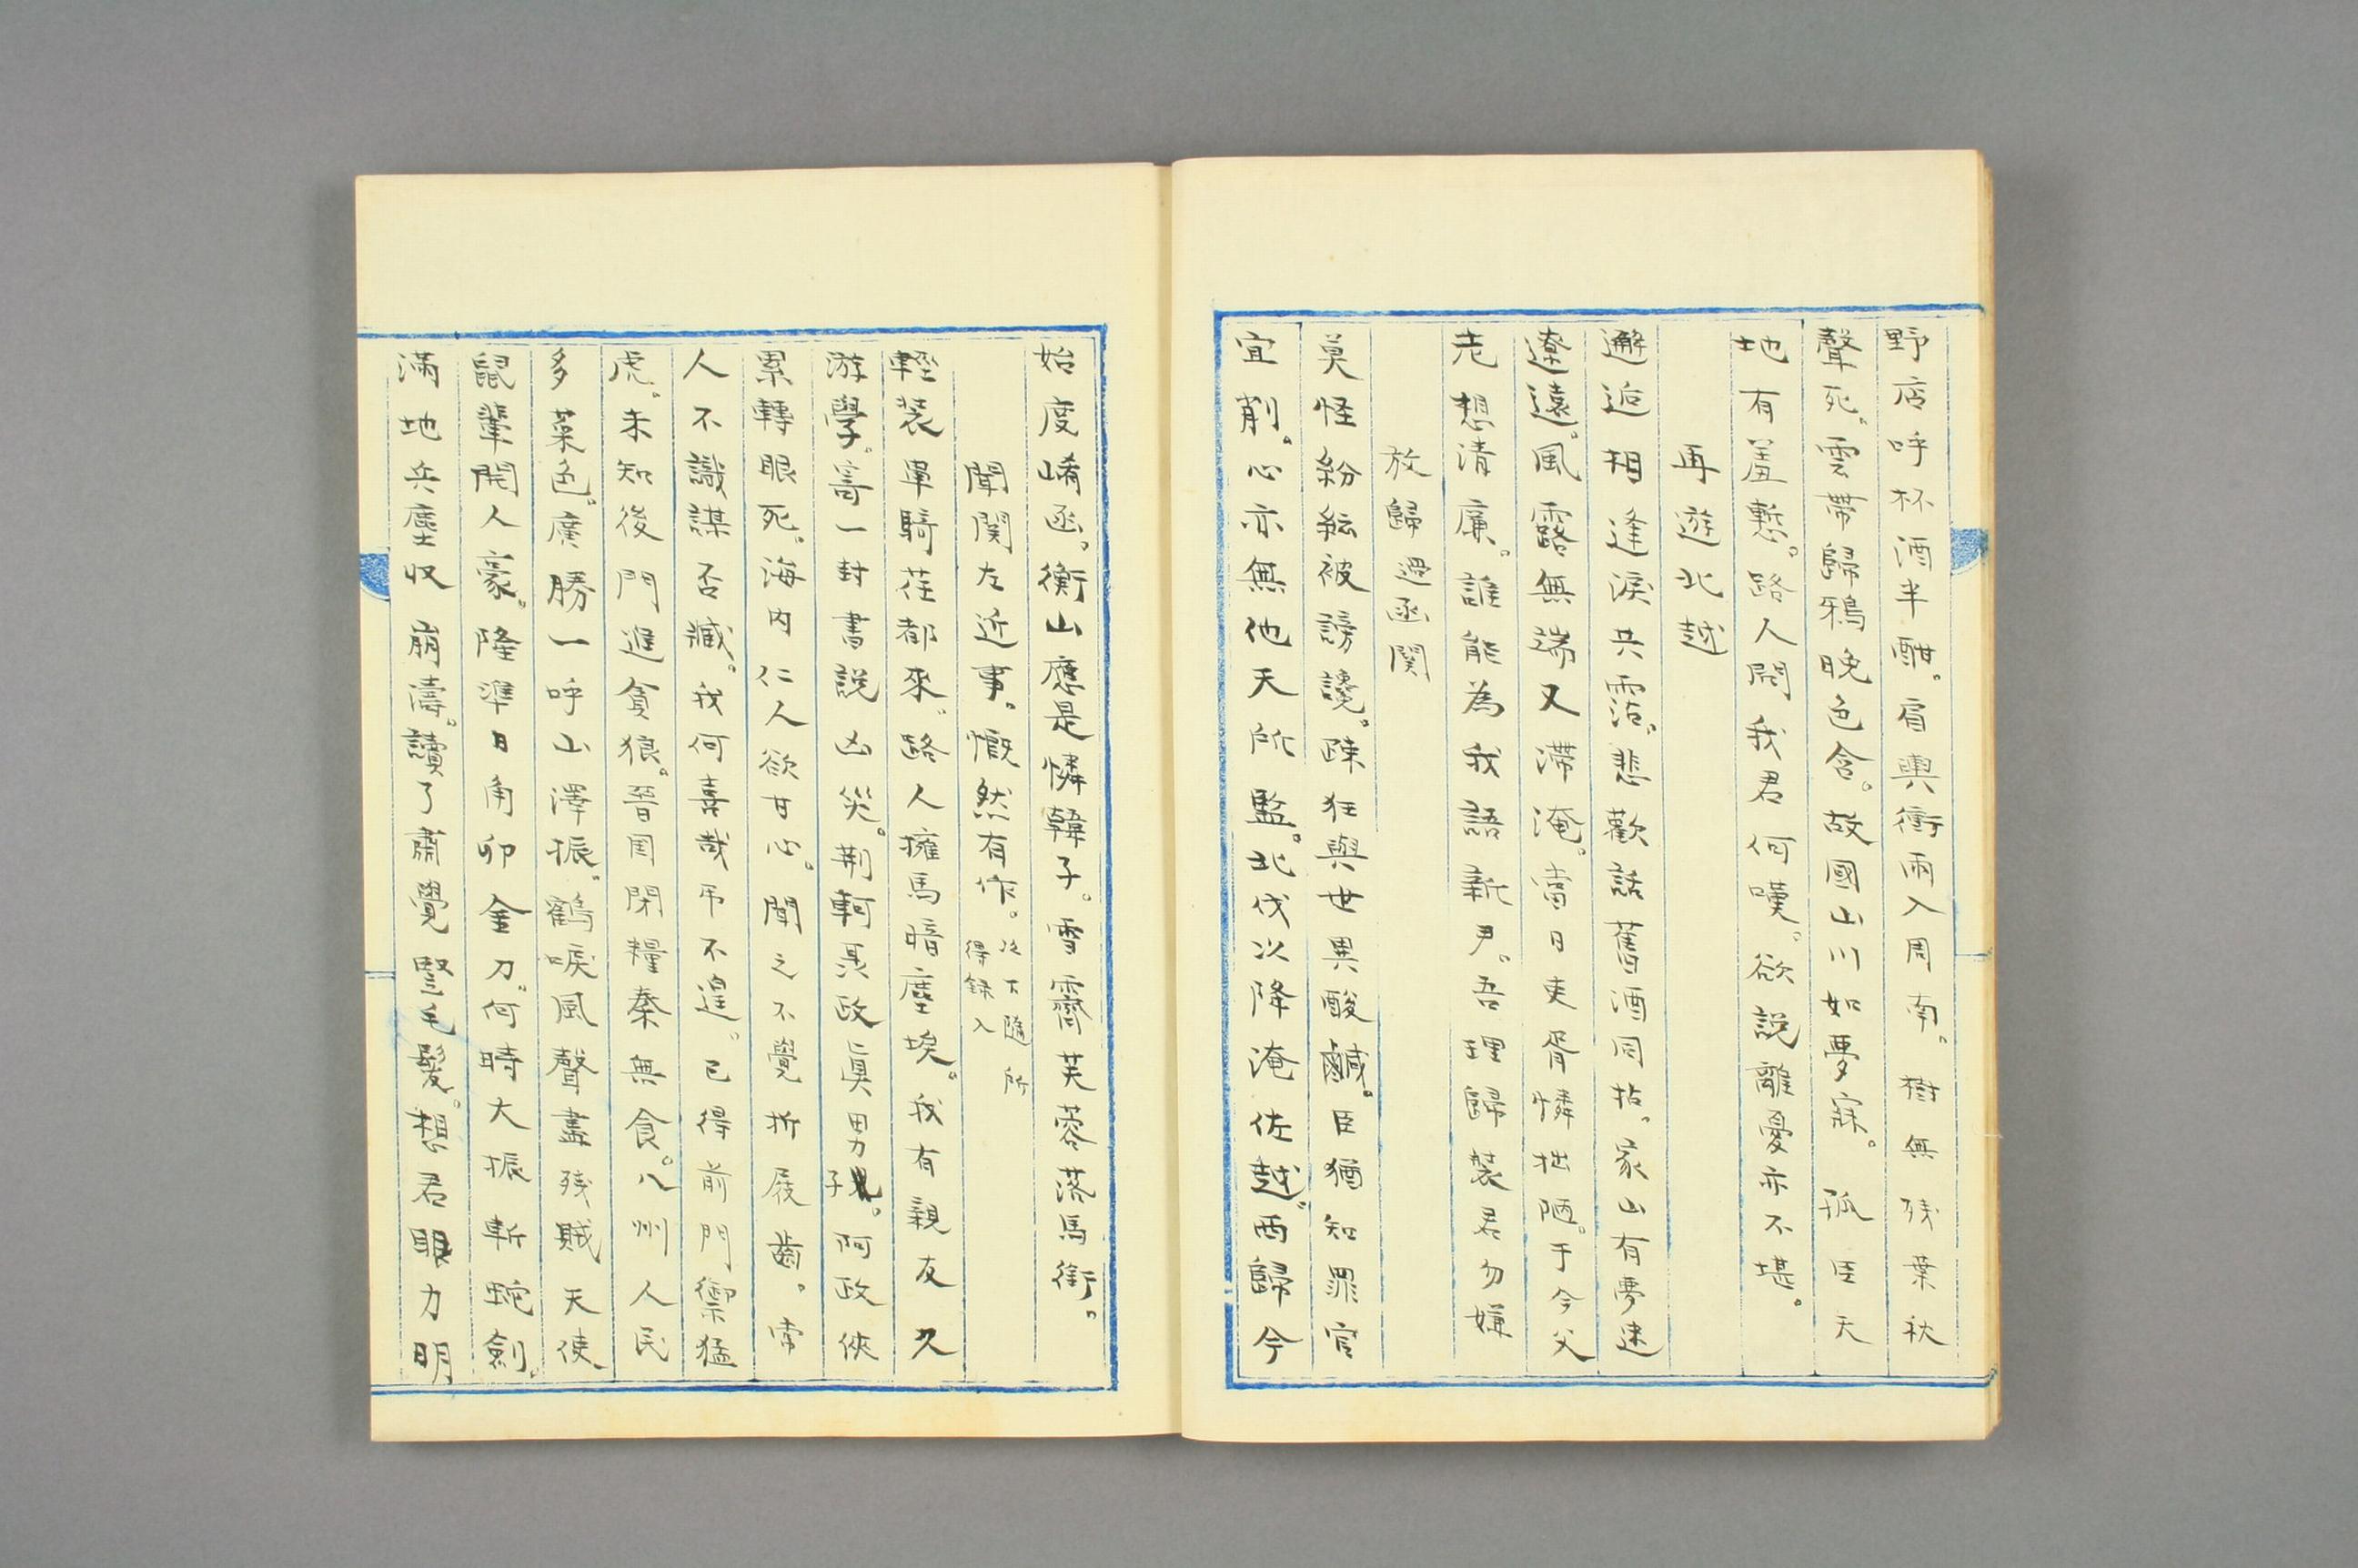 野店呼杯酒半酣。肩輿衝雨入周南。樹無残葉秋
聲死。雲帯歸鴉晩色含。故國山川如夢寐。孤臣天
地有羞慙。路人問我君何嘆。欲説離憂亦不堪。
再遊北越
邂逅相逢涙共霑。悲歡話舊酒同拈。家山有夢迷
遼遠。風露無端又滞淹。當日吏胥憐拙陋。于今父
老想清廉。誰能為我語新尹。吾理歸装君勿嫌
放歸過函関
莫怪紛紜被謗讒。疎狂與世異酸鹹。臣猶知罪官
宜削。心亦無他天所監。北伐以降淹佐越。西歸今
始度崤函。衡山應是憐韓子。雪霽芙蓉落馬銜。
聞関左近事。慨然有作。以下隨所得録入
輕装單騎荏都來。路人擁馬暗塵埃。我有親友久
游學。寄一封書説凶災。荊軻聶政眞男子。阿政俠
累轉眼死。海内仁人欲甘心。聞之不覺折屐齒。常
人不識謀否臧。我何喜哉弔不遑。已得前門禦猛
虎。未知後門進貪狼。晉国閉糧秦無食。八州人民
多菜色。廣勝一呼山澤振。鶴唳風聲盡残賊天使
鼠輩開人豪。隆準日角卯金刀。何時大振斬蛇劍。
滿地兵塵収崩濤。讀了肅覺竪毛髮。想君眼力明